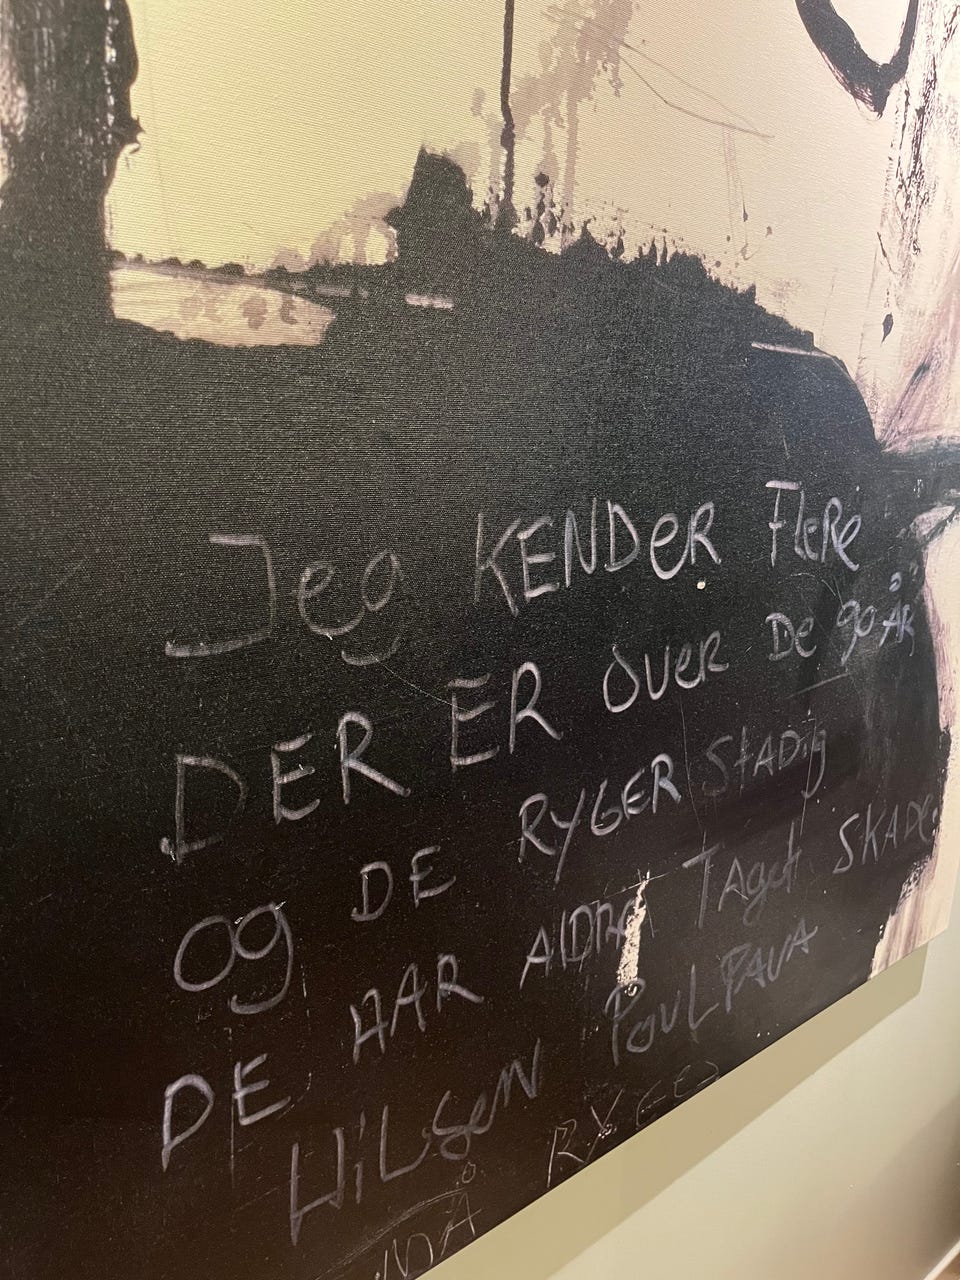 Jeg KENDER FLERE
DER ER OVER DE 90 ÅR
og DE RYGER StADig
DE HAR ALDRIG TAget SKADE
HiLSeN PouL PAVA
RYGES